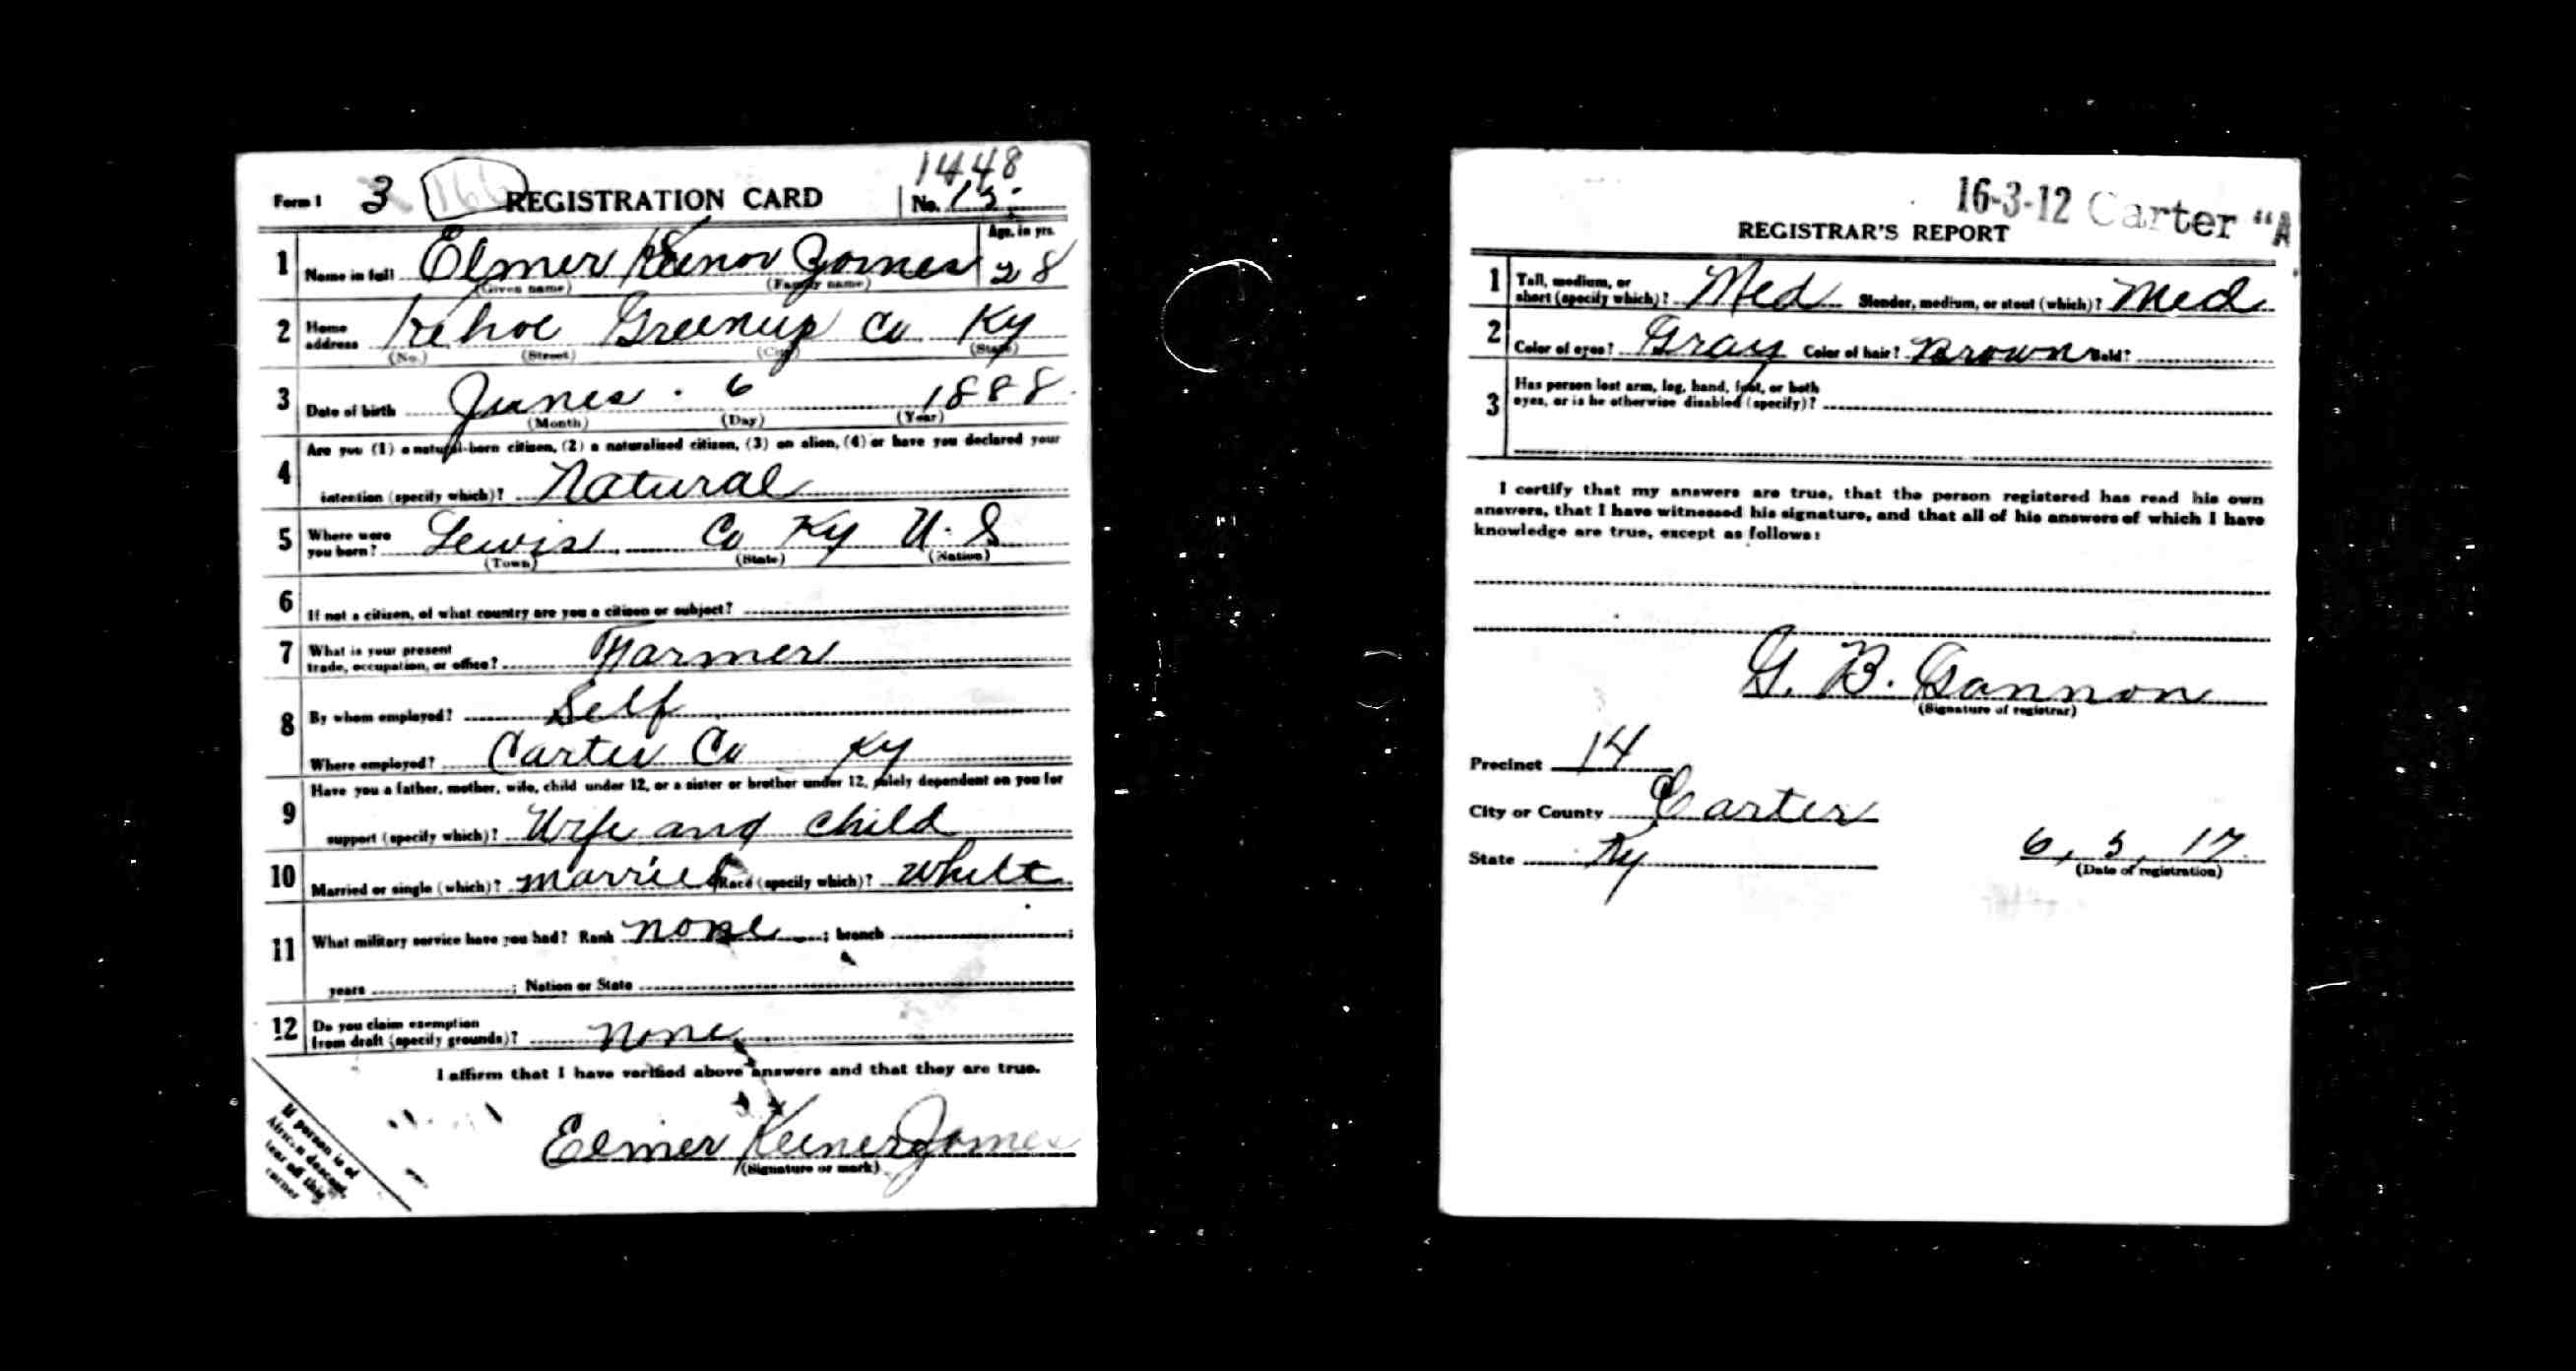 1448
Form 1 3 166 REGISTRATION CARD No. 15
1 Name in full Elmer Zornes Age, in yrs. 28
(Given name) (Family name)
2 Home address Kehoe Greenup Co Ky
(No.) (Street) (City) (State)
3 Date of birth June 6 1888
(Month) (Day) (Year)
Are you (1) a natural-born citizen, (2) a naturalized citizen, (3) an alien, (4) or have you declared your
4 intention (specify which)? Natural
5 Where were you born? Lewis Co Ky U.S
(Town) (State) (Nation)
6 If not a citizen, of what country are you a citizen or subject?
7 What is your present trade, occupation, or office? Farmer
8 By whom employed? Self
Where employed? Carter Co Ky
Have you a father, mother, wife, child under 12, or a sister or brother under 12, solely dependent on you for
9 support (specify which)? Wife and child
10 Married or single (which)? married Race (specify which)? White
11 What military service have you had? Rank none ; branch ;
years ; Nation or State
12 Do you claim exemption from draft (specify grounds)? none
I affirm that I have verified above answers and that they are true.
Elmer Keener
(Signature or mark)
If person is of
African descent,
tear off this
corner
16-3-12 Carter "A
REGISTRAR'S REPORT
1 Tall, medium, or short (specify which)? Med Slender, medium, or stout (which)? Med
2 Color of eyes? Gray Color of hair? Brown Bald?
3 Has person lost arm, leg, hand, foot, or both
eyes, or is he otherwise disabled (specify)?
I certify that my answers are true, that the person registered has read his own
answers, that I have witnessed his signature, and that all of his answers of which I have
knowledge are true, except as follows:
G. B. Gannon
(Signature of registrar)
Precinct 14
City or County Carter
State Ky 6, 5, 17
(Date of registration)